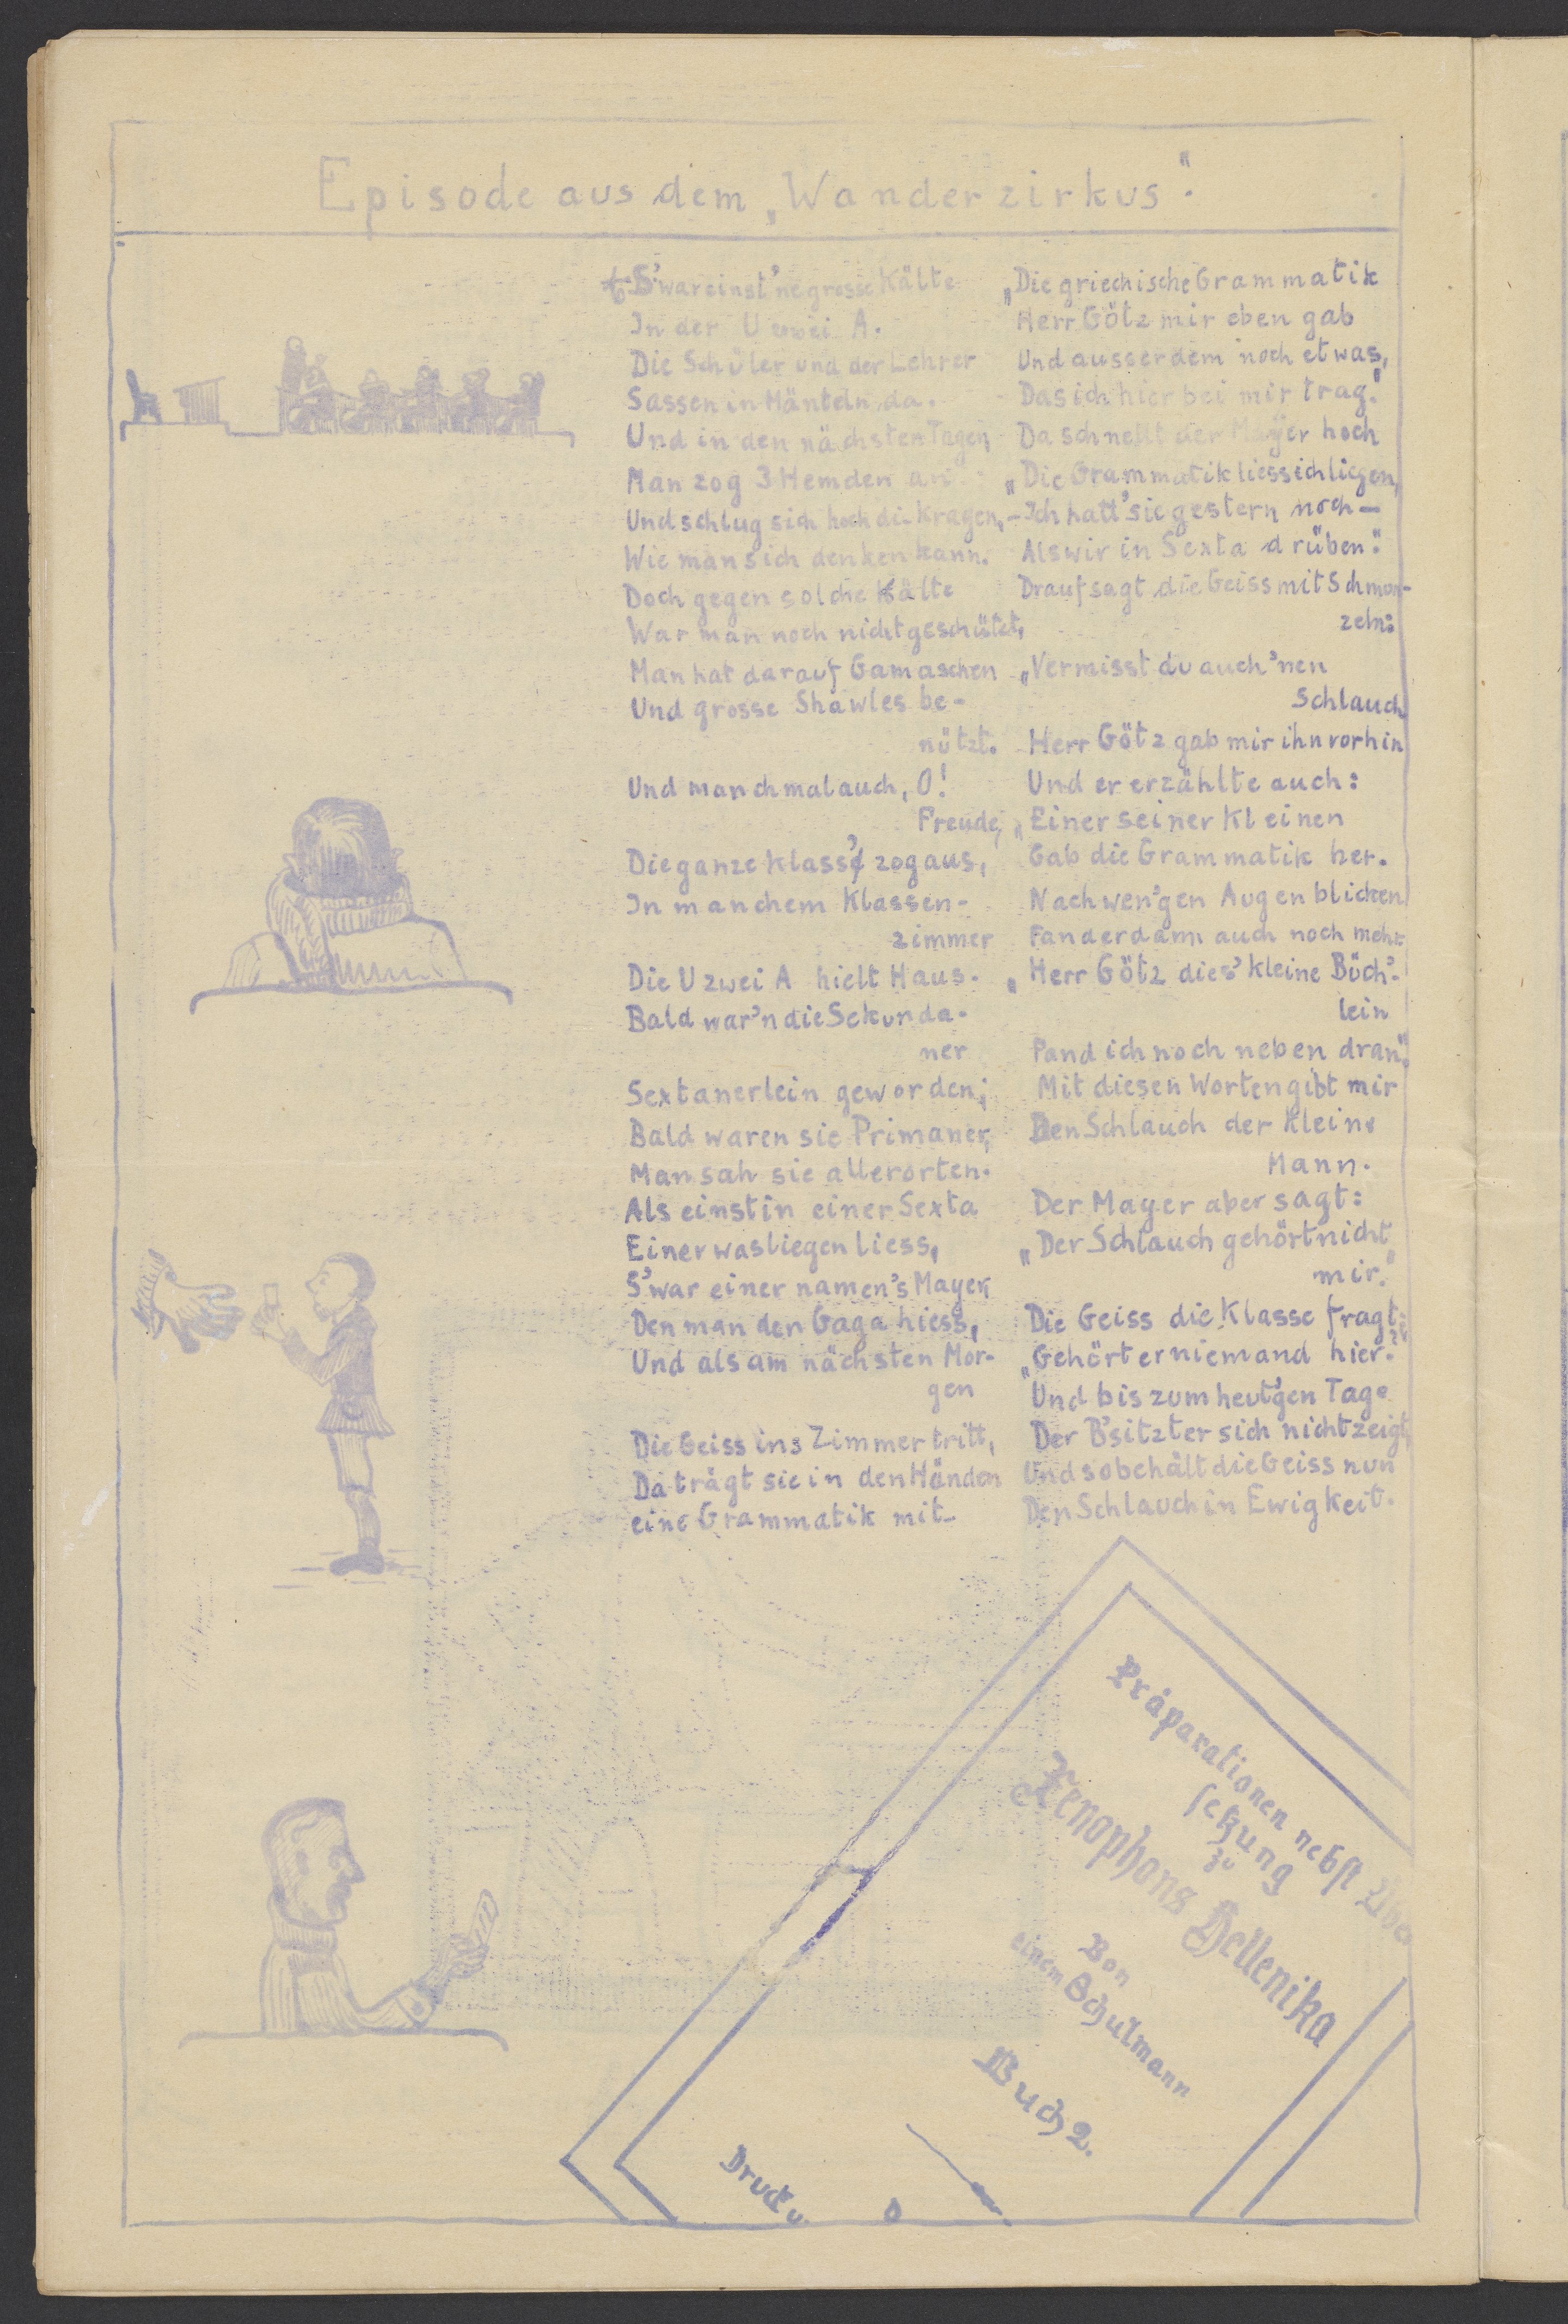 Episode aus dem „Wanderzirkus".
S'war einst 'ne grosse Kälte
In der U zwei A.
Die Schüler und der Lehrer
Sassen in Mänteln da.
Und in den nächsten Tagen
Man zog 3 Hemden an
Und schlug sich hoch die Kragen,
Wie man sich denken kann.
Doch gegen solche Kälte
War man noch nicht geschützt,
Man hat darauf Gamaschen
Und grosse Shawles be-
nützt.
Und manchmal auch, O!
Freude,
Die ganze Klass' zog aus,
In manchem Klassen-
zimmer
Die U zwei A hielt Haus.
Bald war'n die Sekunda-
ner
Sextanerlein geworden;
Bald waren sie Primaner,
Man sah sie allerorten.
Als einst in einer Sexta
Einer was liegen liess,
S'war einer namen's Mayer,
Den man den Gaga hiess,
Und als am nächsten Mor-
gen
Die Geiss ins Zimmer tritt,
Da trägt sie in den Händen
eine Grammatik mit.
„Die griechische Grammatik
Herr Götz mir eben gab
Und ausserdem noch etwas,
Das ich hier bei mir trag."
Da schnellt der Mayer hoch
„Die Grammatik liess ich liegen,
- Ich hatt' sie gestern noch -
Als wir in Sexta drüben."
Drauf sagt die Geiss mit Schmun-
zeln:
„Vermisst du auch 'nen
Schlauch
Herr Götz gab mir ihn vorhin
Und er erzählte auch:
„Einer seiner Kleinen
Gab die Grammatik her.
Nach wen'gen Augenblicken
Fand er dann auch noch mehr
„Herr Götz dies' kleine Büch'-
lein
Fand ich noch neben dran".
Mit diesen Worten gibt mir
Den Schlauch der kleine
Mann.
Der Mayer aber sagt:
„Der Schlauch gehört nicht
mir."
Die Geiss die Klasse fragt:
„Gehört er niemand hier?"
Und bis zum heut'gen Tage
Der B'sitzter sich nicht zeigt,
Und so behält die Geiss nun
Den Schlauch in Ewigkeit.
Präparationen nebst Über
setzung
zu
Xenophons Hellenika
Von
einem Schulmann
Buch 2.
Druck u.